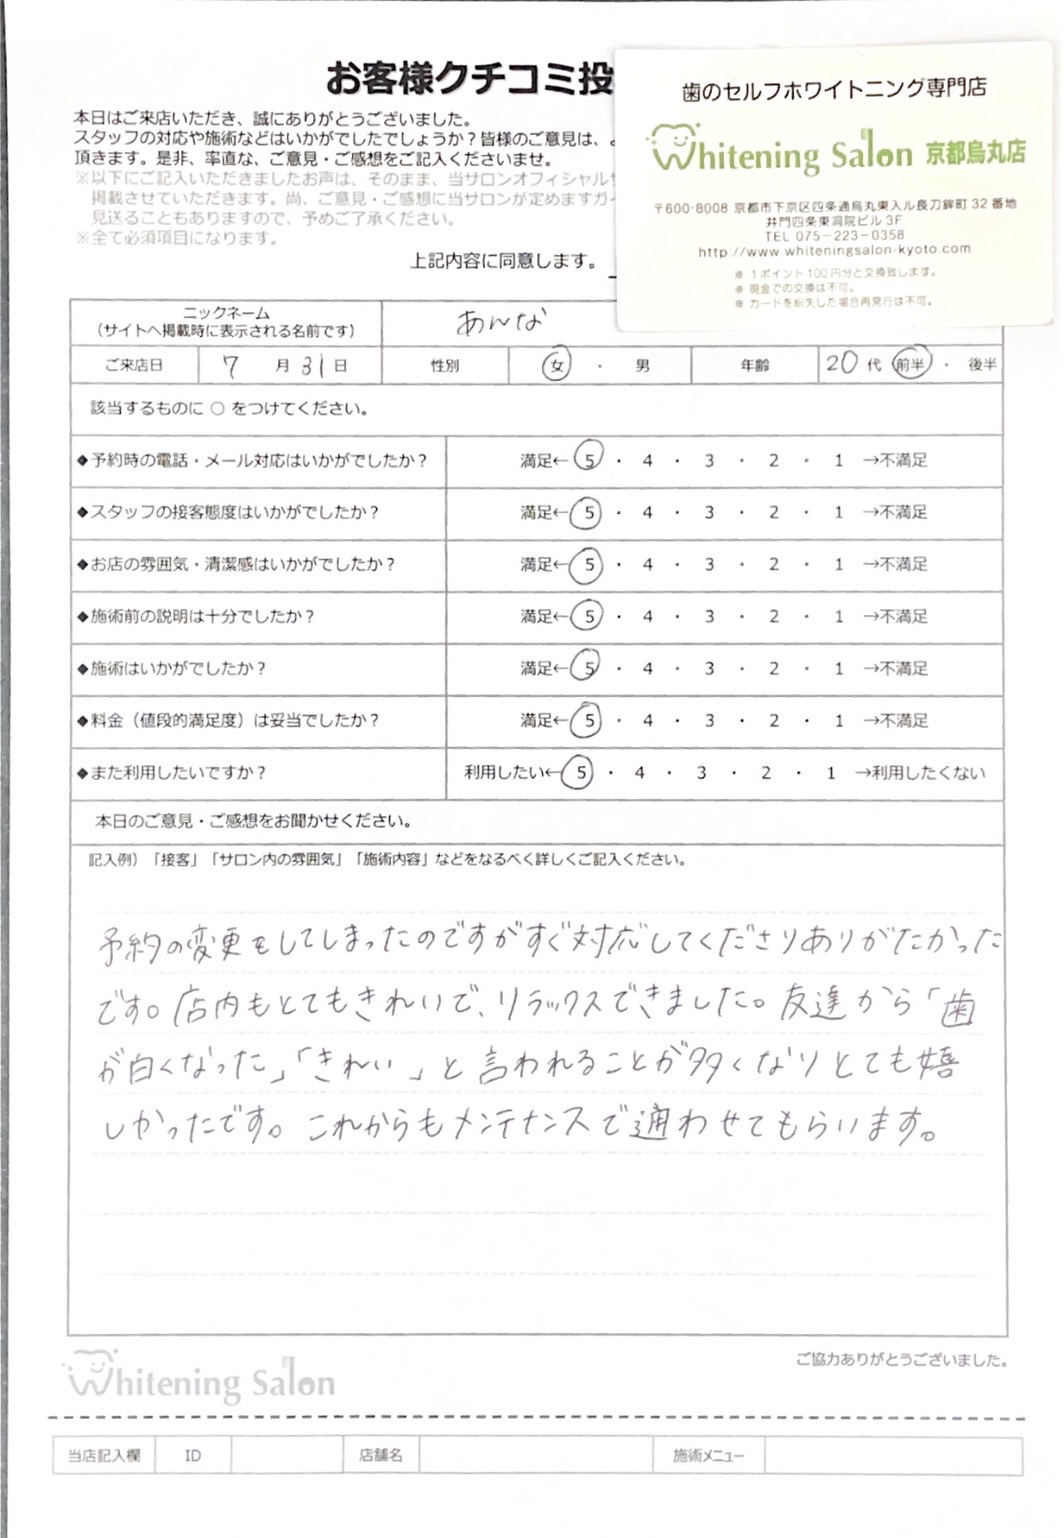 お客様クチコミ投
歯のセルフホワイトニング専門店
Whitening Salon 京都烏丸店
〒600-8008 京都市下京区四条通烏丸東入ル長刀鉾町32番地
井門四条東洞院ビル3F
TEL 075-223-0358
http://www.whiteningsalon-kyoto.com
※ 1ポイント100円分と交換致します。
※ 現金での交換は不可。
※ カードを紛失した場合再発行は不可。
本日はご来店いただき、誠にありがとうございました。
スタッフの対応や施術などはいかがでしたでしょうか?皆様のご意見は、
頂きます。是非、率直な、ご意見・ご感想をご記入くださいませ。
※以下にご記入いただきましたお声は、そのまま、当サロンオフィシャル
掲載させていただきます。尚、ご意見・ご感想に当サロンが定めますガ
見送ることもありますので、予めご了承ください。
※全て必須項目になります。
上記内容に同意します。
ニックネーム
(サイトへ掲載時に表示される名前です) あんな
ご来店日 7 月 31 日 性別 女 ・ 男 年齢 20 代 前半 ・ 後半
該当するものに ○ をつけてください。
◆予約時の電話・メール対応はいかがでしたか? 満足← 5 ・ 4 ・ 3 ・ 2 ・ 1 →不満足
◆スタッフの接客態度はいかがでしたか? 満足← 5 ・ 4 ・ 3 ・ 2 ・ 1 →不満足
◆お店の雰囲気・清潔感はいかがでしたか? 満足← 5 ・ 4 ・ 3 ・ 2 ・ 1 →不満足
◆施術前の説明は十分でしたか? 満足← 5 ・ 4 ・ 3 ・ 2 ・ 1 →不満足
◆施術はいかがでしたか? 満足← 5 ・ 4 ・ 3 ・ 2 ・ 1 →不満足
◆料金(値段的満足度)は妥当でしたか? 満足← 5 ・ 4 ・ 3 ・ 2 ・ 1 →不満足
◆また利用したいですか? 利用したい← 5 ・ 4 ・ 3 ・ 2 ・ 1 →利用したくない
本日のご意見・ご感想をお聞かせください。
記入例)「接客」「サロン内の雰囲気」「施術内容」などをなるべく詳しくご記入ください。
予約の変更をしてしまったのですがすぐ対応してくださりありがたかった
です。店内もとてもきれいで、リラックスできました。友達から「歯
が白くなった」「きれい」と言われることが多くなりとても嬉
しかったです。これからもメンテナンスで通わせてもらいます。
ご協力ありがとうございました。
Whitening Salon
当店記入欄 ID 店舗名 施術メニュー